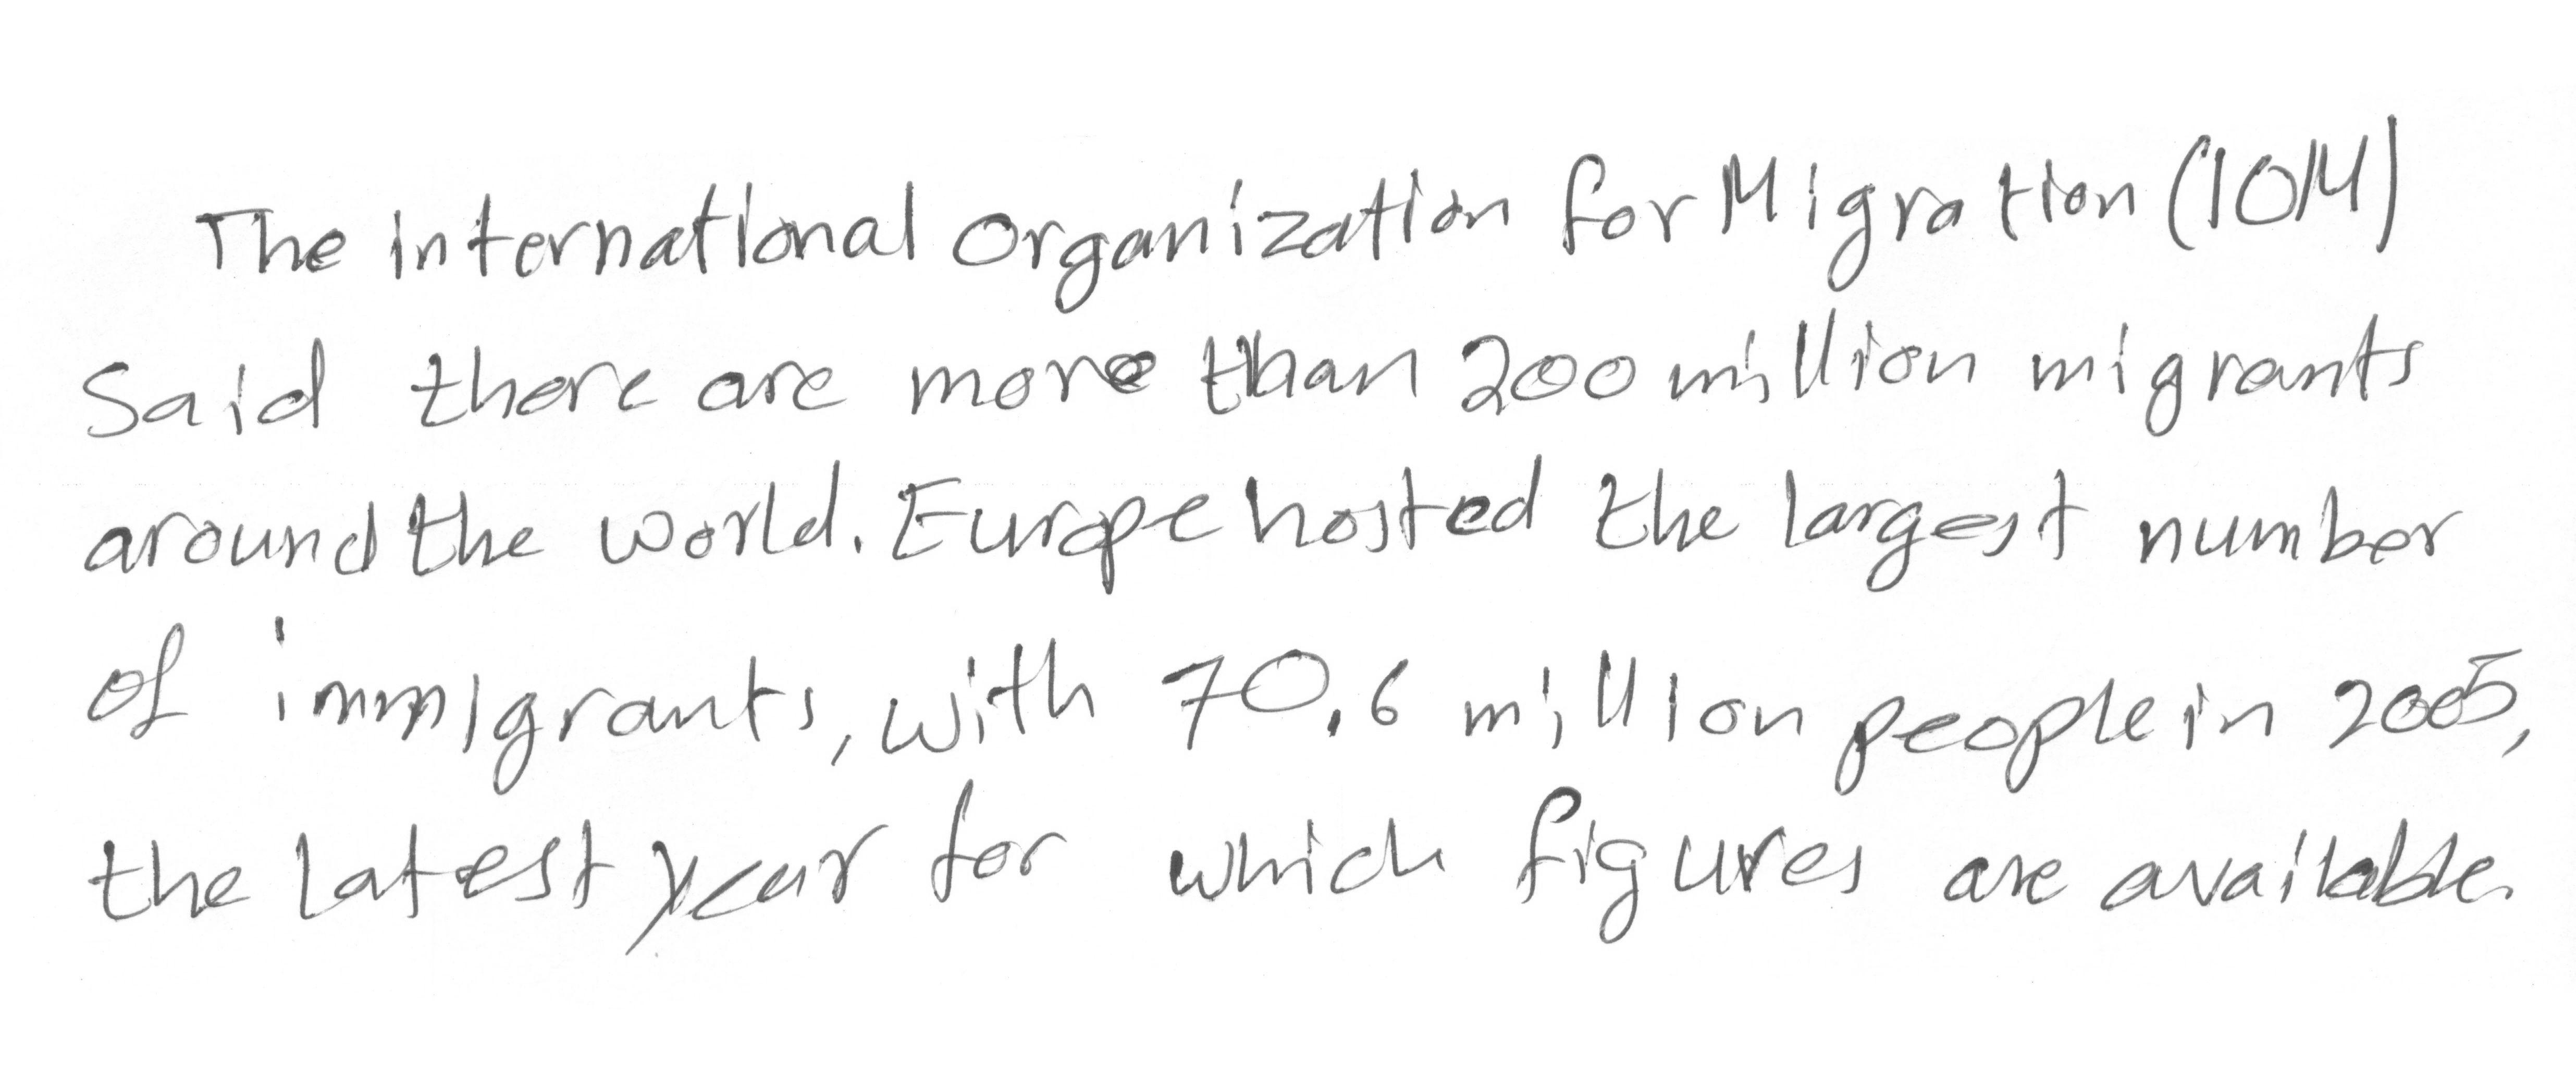 The international organization for Migration (IOM)
Said there are more than 200 million migrants
around the world. Europe hosted the largest number
of immigrants, with 70.6 million people in 2005,
the latest year for which figures are available.